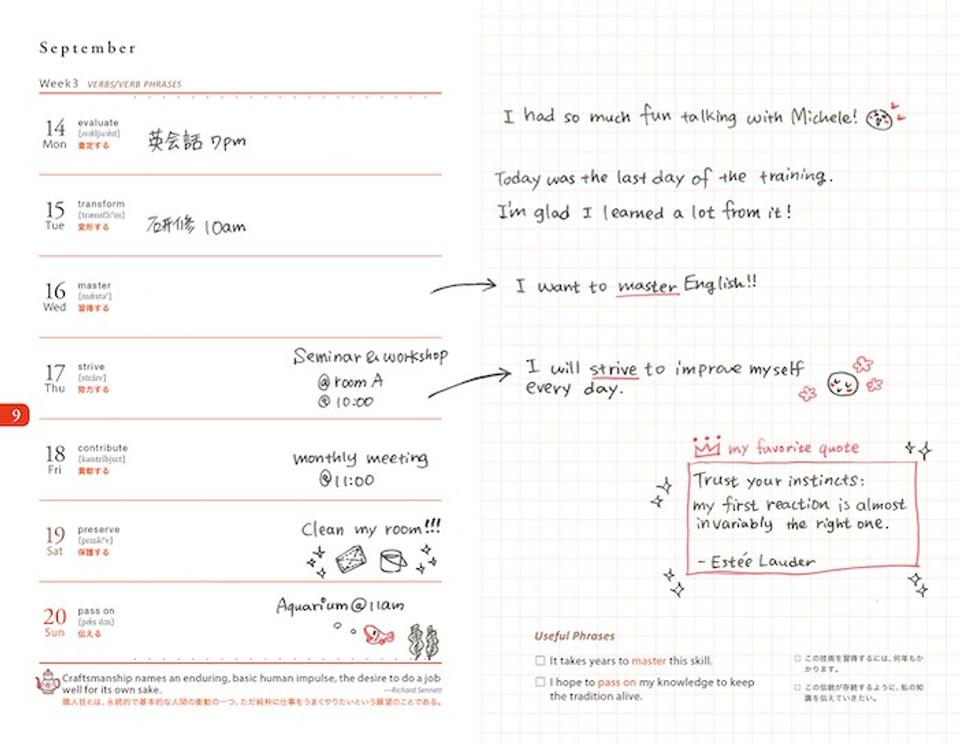 September
Week3 VERBS/VERB PHRASES
14
Mon
evaluate
査定する
英会話 7pm
15
Tue
transform
変形する
研修 10am
16
Wed
master
習得する
17
Thu
strive
努力する
Seminar & workshop
@ room A
@ 10:00
9
18
Fri
contribute
貢献する
monthly meeting
@11:00
19
Sat
preserve
保護する
Clean my room!!!
20
Sun
pass on
伝える
Aquarium@11am
Craftsmanship names an enduring, basic human impulse, the desire to do a job
well for its own sake.
—Richard Sennett
職人技とは、永続的で基本的な人間の衝動の一つ、ただ純粋に仕事をうまくやりたいという願望のことである。
I had so much fun talking with Michele!
Today was the last day of the training.
I'm glad I learned a lot from it!
I want to master English!!
I will strive to improve myself
every day.
my favorite quote
Trust your instincts:
my first reaction is almost
invariably the right one.
- Estée Lauder
Useful Phrases
□ It takes years to master this skill.
□ I hope to pass on my knowledge to keep
the tradition alive.
□ この技術を習得するには、何年もか
かります。
□ この伝統が存続するように、私の知
識を伝えていきたい。